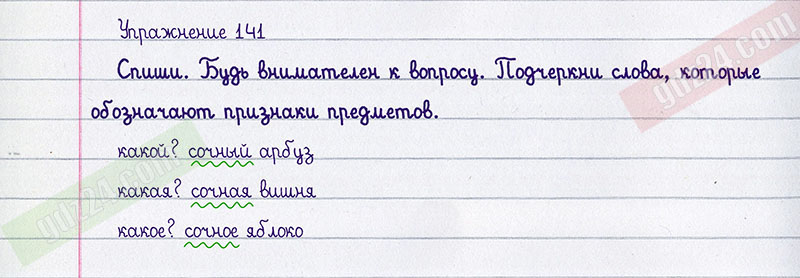 Упражнение 141
Спиши. Будь внимателен к вопросу. Подчеркни слова, которые
обозначают признаки предметов.
какой? сочный арбуз
какая? сочная вишня
какое? сочное яблоко
gdz24.com
gdz24.com